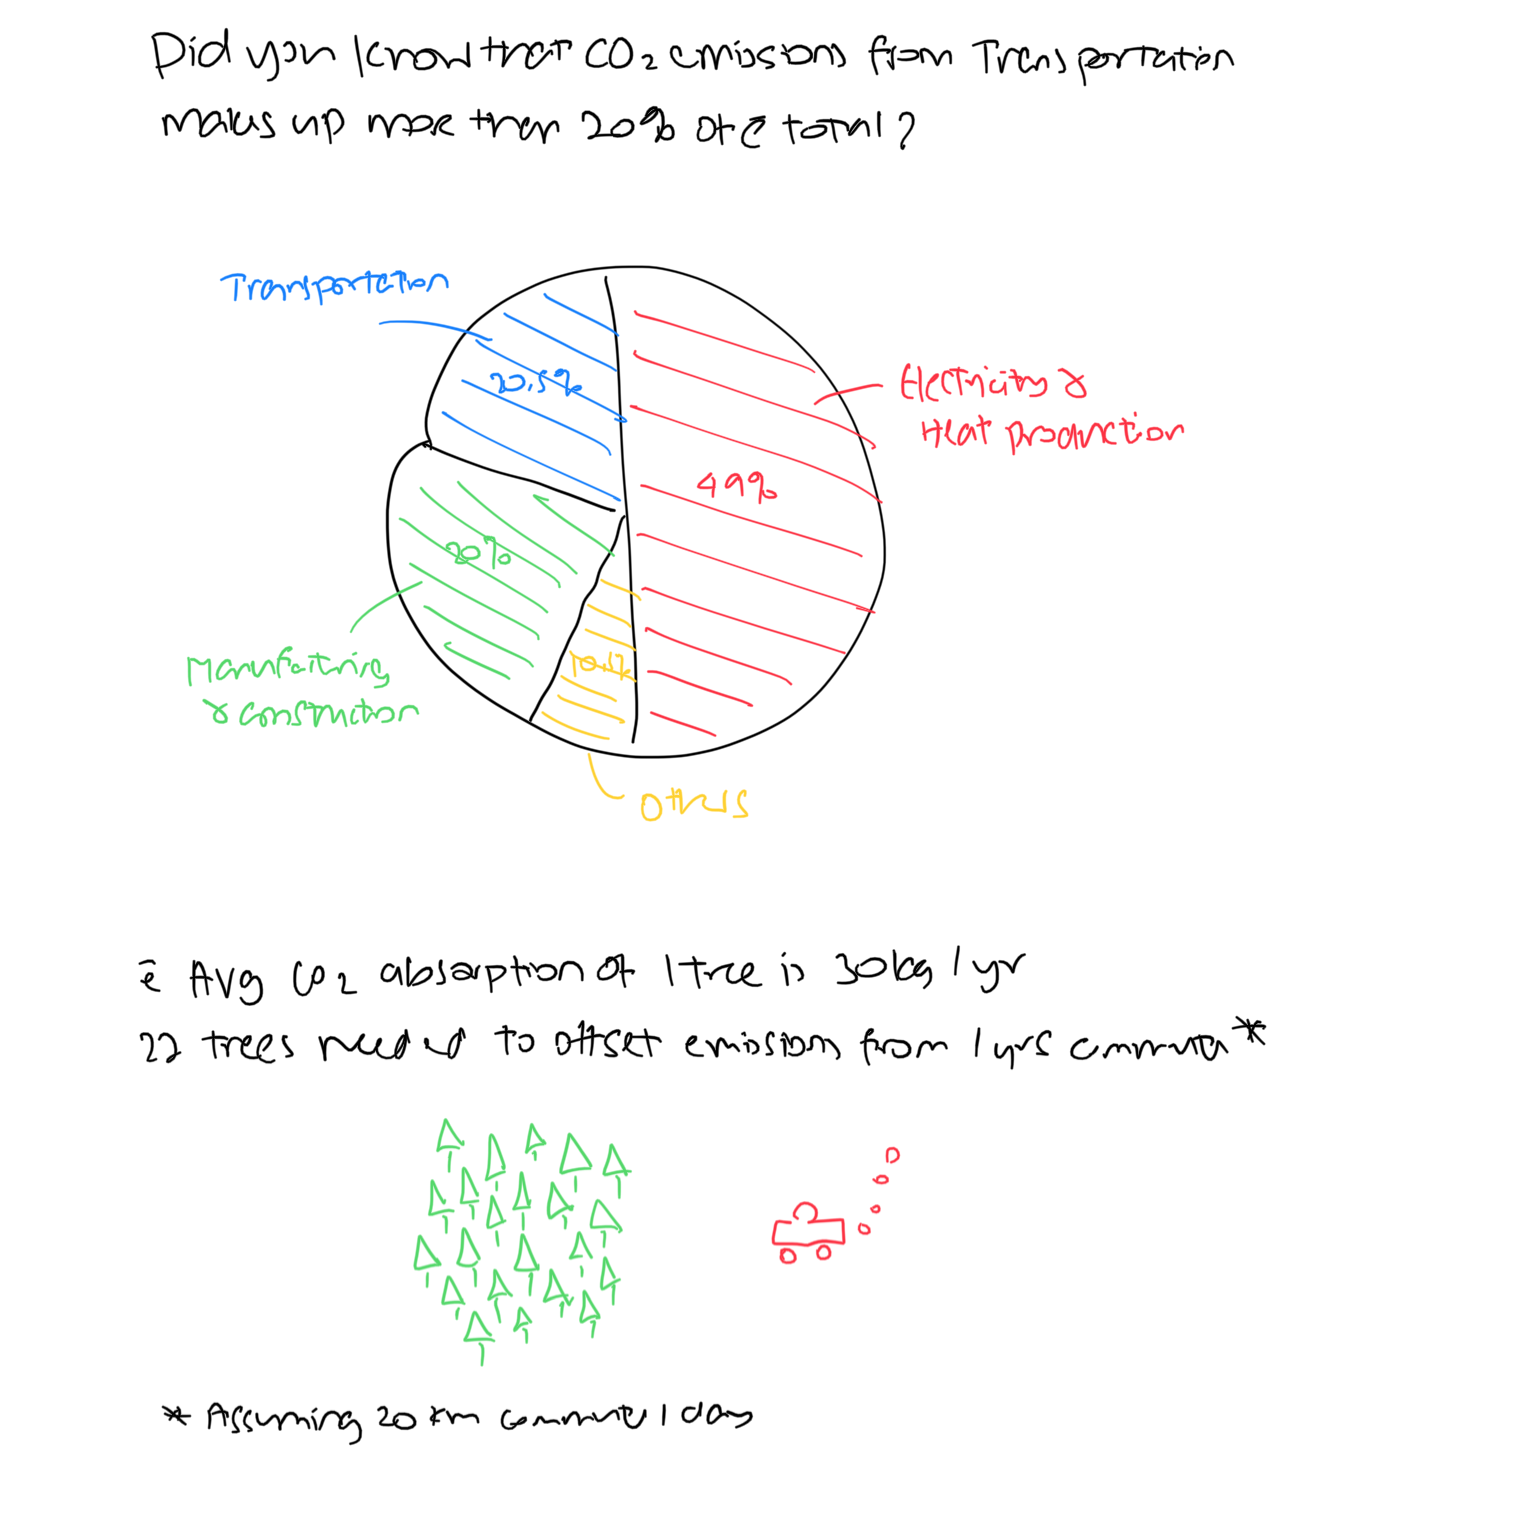 Did you know that CO2 emissions from Transportation
makes up more than 20% of ē total?
Transportation
20.5%
Electricity &
Heat production
49%
20%
Manufacturing
& construction
10.5%
Others
ē Avg CO2 absorption of 1 tree is 30kg / yr
22 trees needed to offset emissions from 1 yrs commute*
* Assuming 20 km commute / day